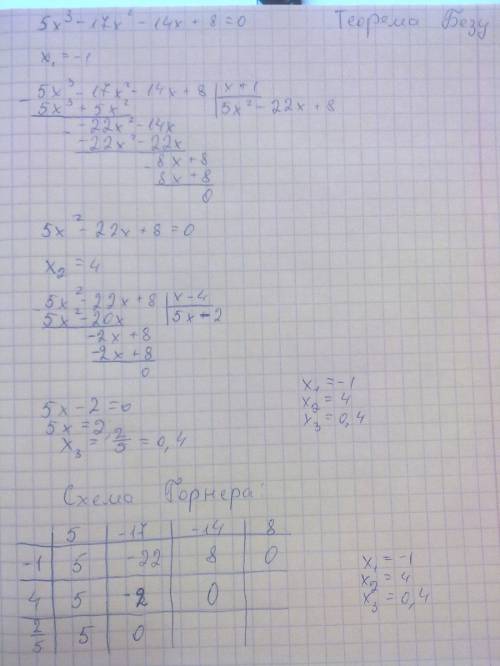 5x³ - 17x² - 14x + 8 = 0 Теорема Безу
x₁ = -1
5x³ - 17x² - 14x + 8 | x + 1
5x³ + 5x² | 5x² - 22x + 8
-22x² - 14x
-22x² - 22x
8x + 8
8x + 8
0
5x² - 22x + 8 = 0
x₂ = 4
5x² - 22x + 8 | x - 4
5x² - 20x | 5x - 2
-2x + 8
-2x + 8
0
5x - 2 = 0
5x = 2
x₃ = 2/5 = 0,4
x₁ = -1
x₂ = 4
x₃ = 0,4
Схема Горнера
5 -17 -14 8
-1 5 -22 8 0
4 5 -2 0
2/5 5 0
x₁ = -1
x₂ = 4
x₃ = 0,4